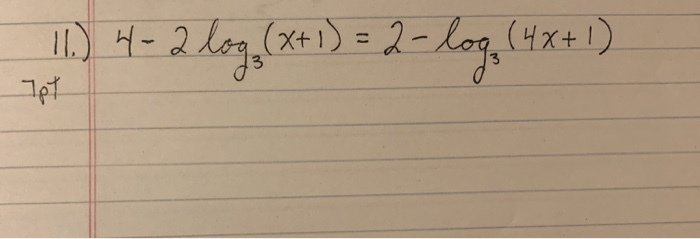 11.) 4 - 2 log₃(x+1) = 2 - log₃(4x+1)
7pt